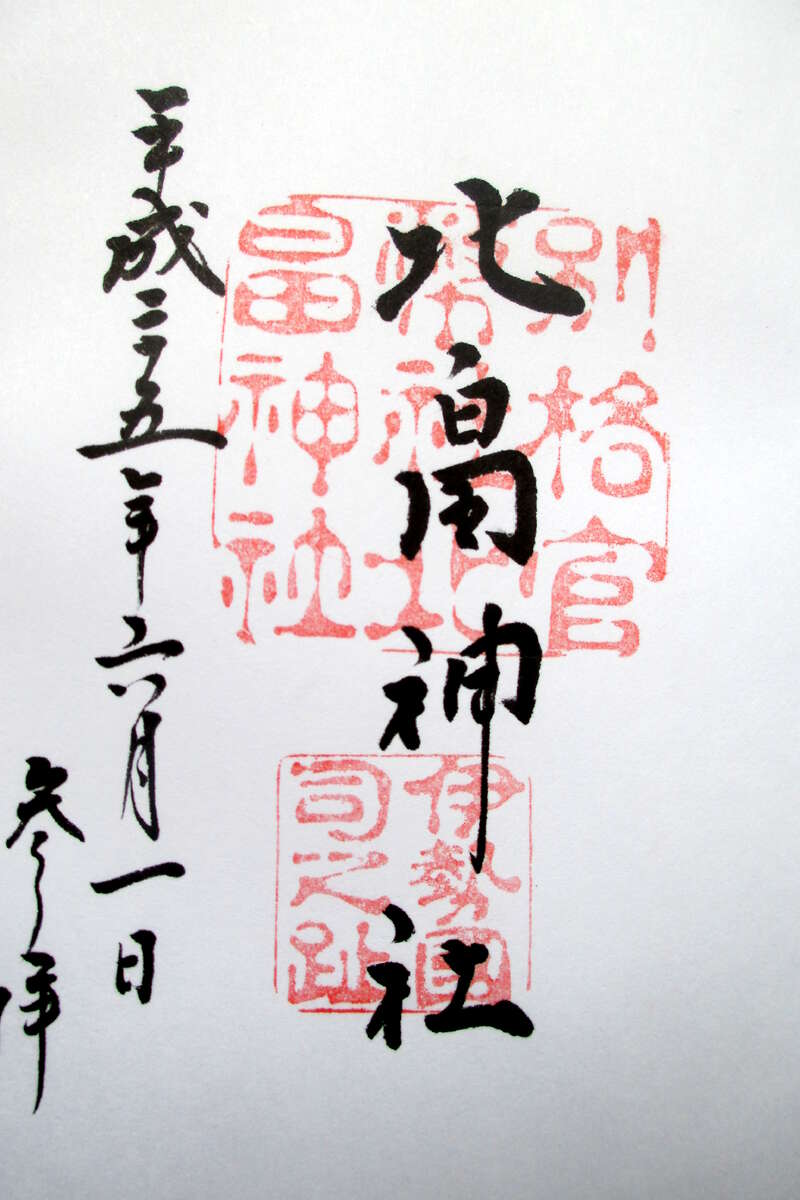 北畠神社
別格官
幣社北
畠神社
伊勢國
司之趾
平成二十五年六月一日
参拝